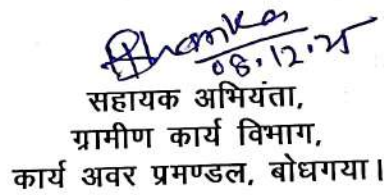 08.12.25
सहायक अभियंता,
ग्रामीण कार्य विभाग,
कार्य अवर प्रमण्डल, बोधगया।